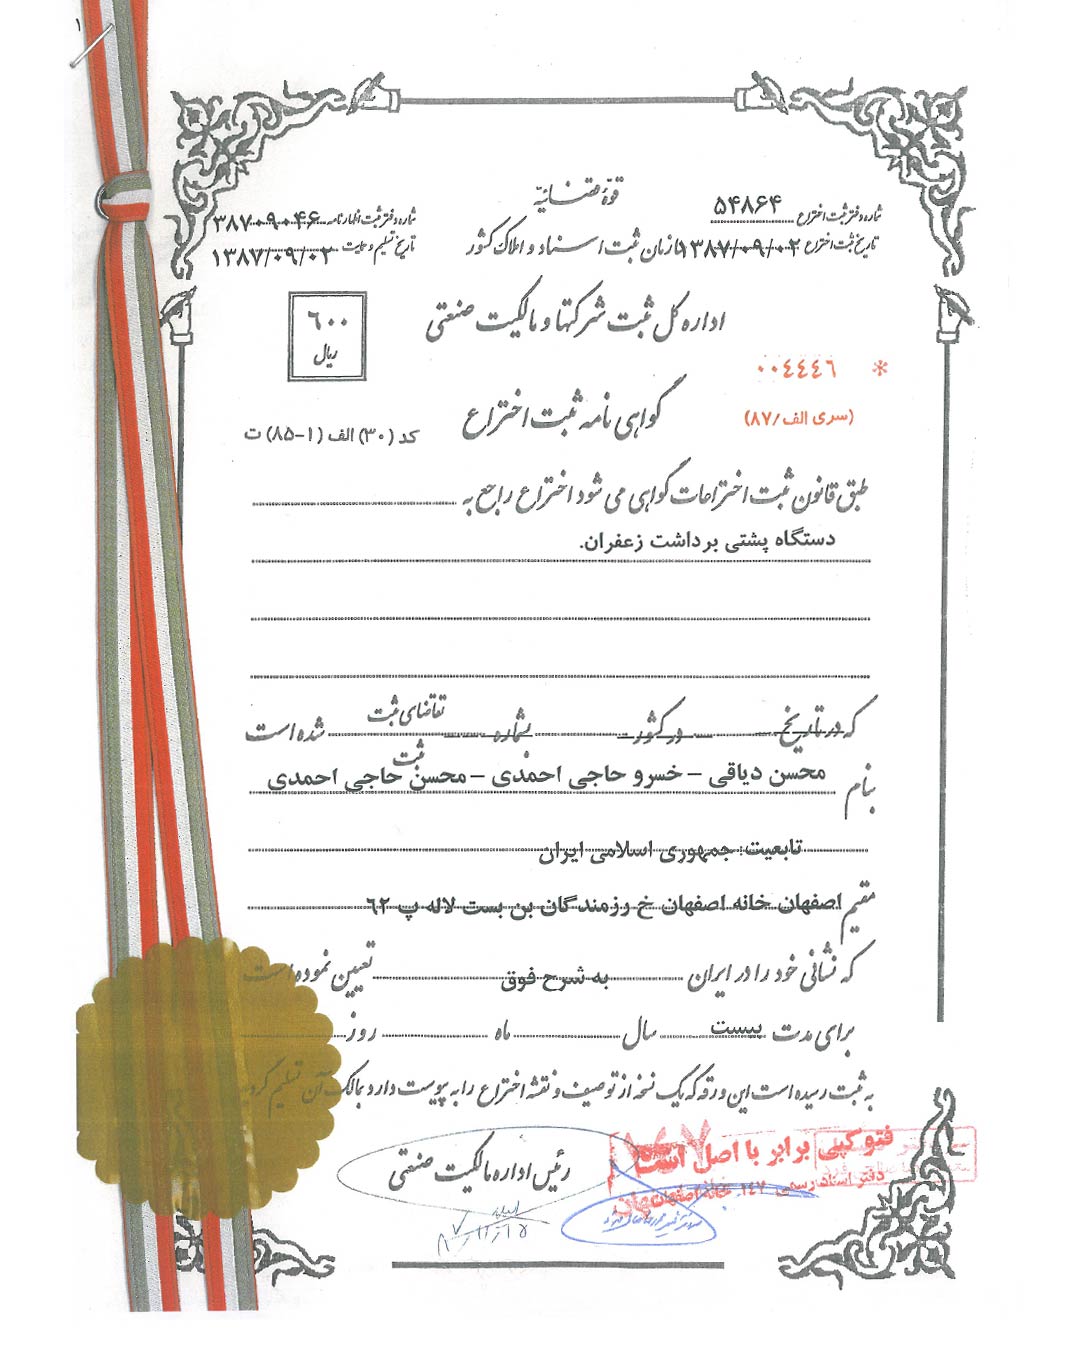 قوهٔ قضائیه
شماره دفتر ثبت اختراع ۵۴۸۶۴
شماره دفتر ثبت اظهارنامه ۳۸۷۰۹۰۴۶
تاریخ ثبت اختراع ۱۳۸۷/۰۹/۰۲
سازمان ثبت اسناد و املاک کشور
تاریخ تسلیم و حمایت ۱۳۸۷/۰۹/۰۲
اداره کل ثبت شرکتها و مالکیت صنعتی
۶۰۰
ریال
* ۰۰٤٤٤٦
(سری الف/۸۷)
گواهی نامه ثبت اختراع
کد (۳۰) الف (۱-۸۵) ت
طبق قانون ثبت اختراعات گواهی می شود اختراع راجع به
دستگاه پشتی برداشت زعفران.
که در تاریخ در کشور بشماره تقاضای ثبت شده است
ثبت
بنام محسن دیاقی - خسرو حاجی احمدی - محسن حاجی احمدی
تابعیت: جمهوری اسلامی ایران
مقیم اصفهان خانه اصفهان خ رزمندگان بن بست لاله پ ۶۲
که نشانی خود را در ایران به شرح فوق تعیین نموده است
برای مدت بیست سال ماه روز
به ثبت رسیده است این ورقه که یک نسخه از توصیف و نقشه اختراع را به پیوست دارد بمالک آن تسلیم گردید
رئیس اداره مالکیت صنعتی
فتوکپی برابر با اصل است
دفتر اسناد رسمی ۱٤۷ خانه اصفهان